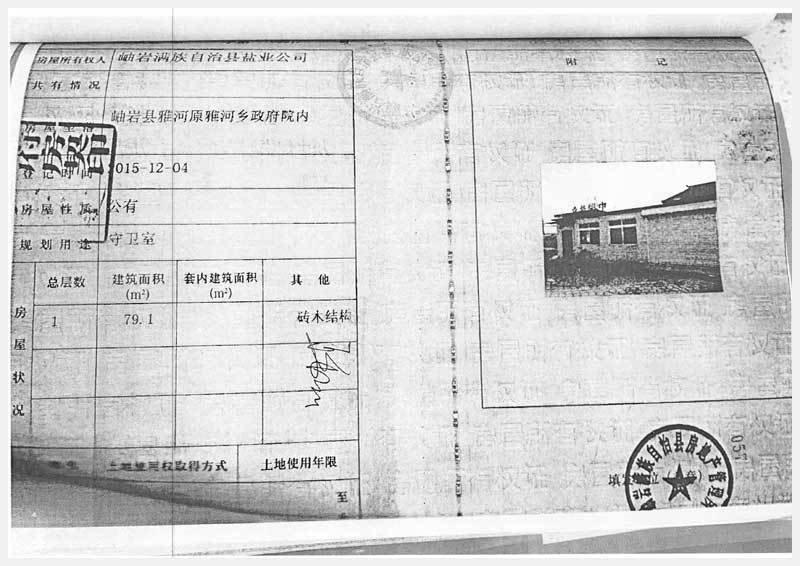 房屋所有权人 岫岩满族自治县盐业公司
共有情况
房屋坐落 岫岩县雅河原雅河乡政府院内
登记时间 2015-12-04
房屋性质 公有
规划用途 守卫室
房屋状况
总层数 建筑面积(m²) 套内建筑面积(m²) 其他
1 79.1 砖木结构
土地使用权取得方式 土地使用年限
至
附记
岫岩满族自治县房地产管理
057
填发单位（章）